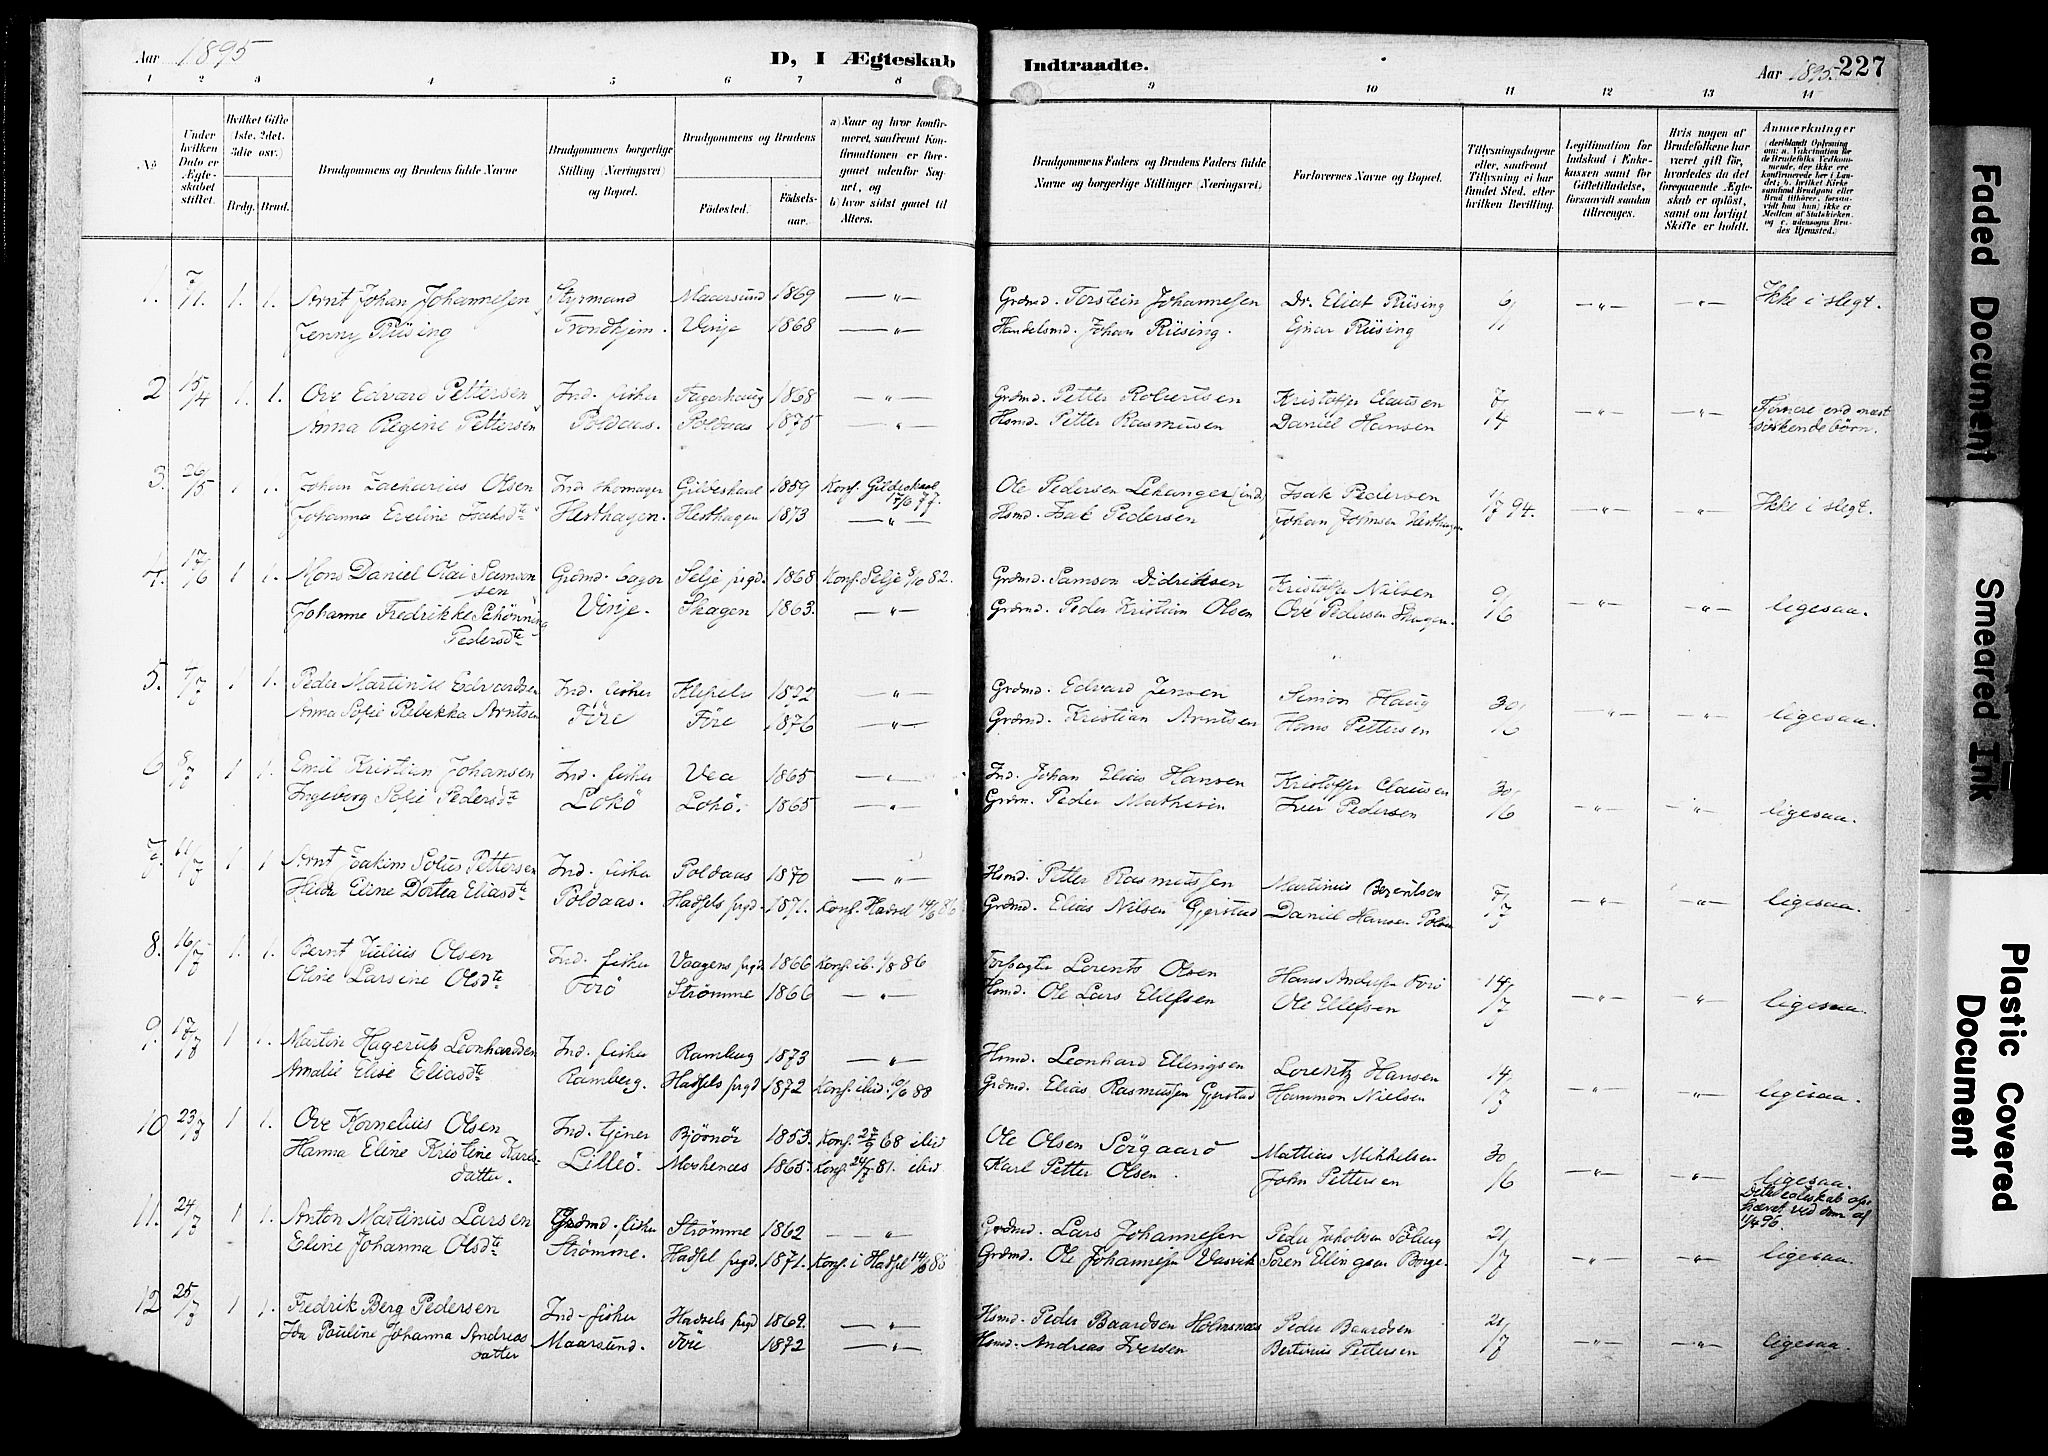 Aar 1895
D, I Ægteskab Indtraadte.
Aar 1895. 227
1 2 3 4 5 6 7 8 9 10 11 12 13 14
No
Under hvilken Dato er Ægteskabet stiftet.
Hvilket Gifte 1ste. 2det. 3die osv.)
Brdg. Brud.
Brudgommens og Brudens fulde Navne
Brudgommens borgerlige Stilling (Næringsvei) og Bopæl.
Brudgommens og Brudens
Födested. Födsels-aar.
a) Naar og hvor konfirmeret, saafremt Konfirmationen er foregaaet udenfor Sognet, og
b) hvor sidst gaaet til Alters.
Brudgommens Faders og Brudens Faders fulde Navne og borgerlige Stillinger (Næringsvei)
Forlovernes Navne og Bopæl.
Tillysningsdagene eller, saafremt Tillysning ei har fundet Sted, efter hvilken Bevilling.
Legitimation for Indskud i Enkekassen samt for Giftetilladelse, forsaavidt saadan tiltrænges.
Hvis nogen af Brudefolkene har været gift för, hvorledes da det foregaaende Ægteskab er oplöst, samt om lovligt Skifte er holdt.
Anmærkninger
1. 7/1. 1. 1. Arnt Johan Johannesen Styrmand Maaersund 1869 —"— Grdmd. Torstein Johannesen Dr. Eliat Rüsing 6/1 —"— —"— Ikke i slegt.
Jenny Rüsing Trondhjem. Vinje 1868 —"— Handelsmd. Johan Rüsing. Ejnar Rüsing
2 15/4 1. 1. Ove Edvard Pettersen Ind. fisker Fagerhaug 1868 —"— Grdmd. Petter Robertsen Kristoffer Clausen 7/4 —"— —"— Fjernere end næst
Anna Regine Pettersen Poldaas. Poldaas 1875 —"— Hsmd. Petter Rasmusen Daniel Hansen söskendebörn.
3. 26/5 1 1. Johan Zacharias Olsen Ind skomager Gildeskaal 1859 Konf. Gildeskaal 17/6 77. Ole Pedersen Lekanger (ind) Isak Pedersen 1/7 94. —"— —"— Ikke i slegt.
Johanna Eveline Isaksdte Hesthagen. Hesthagen 1873 —"— Hsmd. Isak Pedersen Johan Johnsen Hesthagen
4. 17/6 1 1. Mons Daniel Olai Samsonsen Grdmd. bager Selje prgd. 1868 Konf. Selje 8/10 82. Grdmd. Samson Didriksen Kristoffer Nilsen 9/6 —"— —"— ligesaa.
Johanne Fredrikke Schønning Pedersdte Vinje. Skagen 1863. —"— Grdmd. Peder Kristian Olsen Ove Pedersen Skagen.
5. 7/7 1 1. Peder Martinus Edvardsen Ind. fisker —"— Grdmd. Edvard Jensen Simon Haug 30/6 —"— —"— ligesaa.
Anna Sofie Rebekka Arntsen Före Före 1876 —"— Grdmd. Kristian Arntsen Hans Pettersen
6 8/7 1 1. Emil Kristian Johansen Ind. fisker Vea 1865 —"— Ind. Johan Elias Hansen Kristoffer Clausen 30/6 —"— —"— ligesaa.
Ingeborg Sofie Pedersdte Lokö Lokö. 1865 —"— Grdm. Peder Mathisin Iver Pedersen
7. 11/7 1 1 Arnt Joakim Solus Pettersen Ind. fisker Poldaas 1870 —"— Hsmd. Petter Rasmussen Martinus Berentsen 7/7 —"— —"— ligesaa.
Eline Dortea Eliasdte Poldaas. Hadsels prgd. 1871. Konf. Hadsel Grdmd. Elias Nilsen Gjerstad Daniel Hansen
8. 16/7 1. 1. Bernt Julius Olsen Ind. fisker Vaagens prgd 1866 Konf. ib. 1/8 86 Forpagter Lorents Olsen Hans Andersen Forö 14/7 —"— —"— ligesaa.
Oline Larsine Olsdte Forö Strömme 1866 —"— Hsmd. Ole Lars Ellefsen Ole Ellefsen
9. 17/7 1 1. Martin Hagerup Leonhardsen Ind. fisker Ramberg 1873 —"— Hsmd. Leonhard Ellingsen Lorentz Hansen 14/7 —"— —"— ligesaa.
Amalie Elise Eliasdte Ramberg. Hadsels prgd 1872 Konf. ibid 10/6 88 Grdmd. Elias Rasmussen Gjerstad Hammon Nielsen
10 23/7 1 1. Ove Kornelius Olsen Ind. tjener Björnör 1853. Konf. 27/9 68 ibid Ole Olsen Sörgaard Mattias Mikkelsen 30/6 —"— —"— ligesaa.
Hanna Eline Kristine Karlsdatter. Lilleö. 1865. Konf. 24/7 81. ibid Karl Petter Olsen. John Pettersen
11. 24/7 1 1. Anton Martinus Larsen Grdmd. fisker Strömme 1862 —"— Grdmd. Lars Johannesen Peder Jakobsen Söberg 21/7 " —"— Dette egteskab op-hævet ved dom af 1/4 96.
Eline Johanna Olsdte Strömme. Hadsel prgd. 1871. Konf. i Hadsel 14/6 85 Grdmd. Ole Johannesen Vasvik Sören Ellingsen Borge. ligesaa.
12 25/7 1 1. Fredrik Berg Pedersen Ind. fisker Hadsels prgd 1869. —"— Hsmd. Peder Baardsen Holmsnæs Peder Baardsen 21/7 —"— —"— ligesaa.
Ida Pauline Johanna Andreasdatter Maarsund. Före 1872 —"— Hsmd. Andreas Iversen Bertinus Pettersen
Faded Document
Smeared Ink
Plastic Covered Document